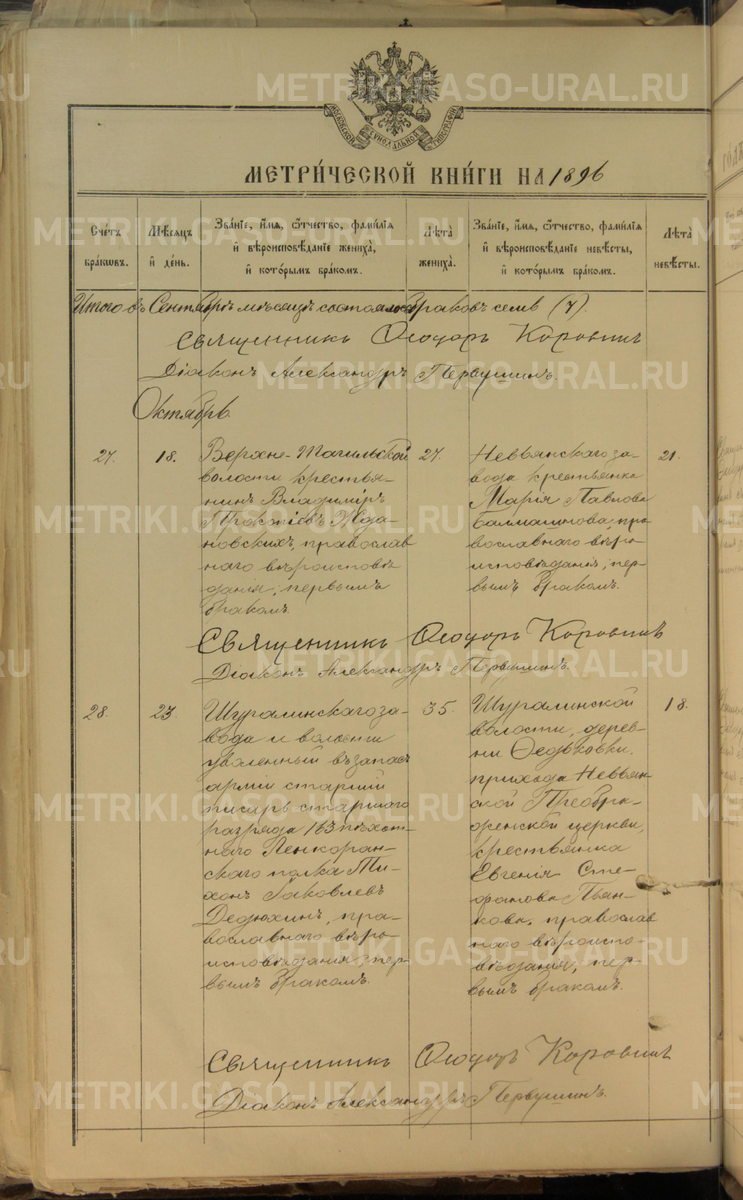 МЕТРИЧЕСКОЙ КНИГИ НА 1896
Счетъ браковъ.
Мѣсяцъ и день.
Званіе, имя, отчество, фамилія и вѣроисповѣданіе жениха, и которымъ бракомъ.
Лѣта жениха.
Званіе, имя, отчество, фамилія и вѣроисповѣданіе невѣсты, и которымъ бракомъ.
Лѣта невѣсты.
Итого въ Сентябрѣ мѣсяцѣ состоялось браковъ семь (7).
Священникъ Ѳеодоръ Коровинъ
Діаконъ Александръ Первушинъ.
Октябрь.
27.
18.
Верхне-Тагильской
волости крестья-
нинъ Владиміръ
Прокопіевъ Жда-
новскихъ, православ
наго вѣроисповѣ
данія, первымъ
бракомъ.
27.
Невьянскаго за-
вода крестьянка
Марія Павлова
пра
вославнаго вѣро
исповѣданія, пер-
вымъ бракомъ.
21.
Священникъ Ѳеодоръ Коровинъ
Діаконъ Александръ Первушинъ.
28.
23.
Шуралинскаго за-
вода и волости
уволенный въ запасъ
арміи старшій
писарь старшаго
разряда 163 пѣхот-
наго Ленкоран-
скаго полка Ти-
хонъ Іаковлевъ
Дедюхинъ, пра-
вославнаго вѣро
исповѣданія, пер
вымъ бракомъ.
35.
Шуралинской
волости, дерев-
ни Ѳедьковки,
прихода Невьян
ской Преобра-
женской церкви,
крестьянка
Евгенія Сте-
фанова Пьян-
кова, православ
наго вѣроиспо-
вѣданія, пер-
вымъ бракомъ.
18.
Священникъ Ѳеодоръ Коровинъ
Діаконъ Александръ Первушинъ.
METRIKI.GASO-URAL.RU